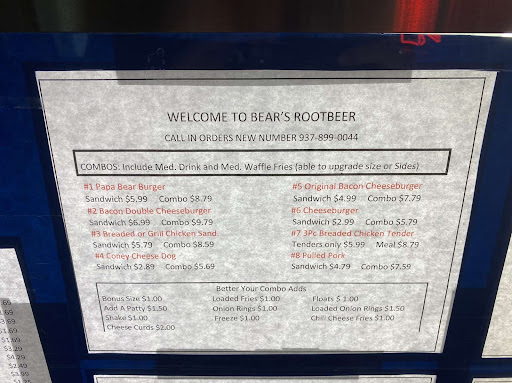 WELCOME TO BEAR'S ROOTBEER
CALL IN ORDERS NEW NUMBER 937-899-0044
COMBOS: Include Med. Drink and Med. Waffle Fries (able to upgrade size or Sides)
#1 Papa Bear Burger
Sandwich $5.99 Combo $8.79
#2 Bacon Double Cheeseburger
Sandwich $6.99 Combo $9.79
#3 Breaded or Grill Chicken Sand.
Sandwich $5.79 Combo $8.59
#4 Coney Cheese Dog
Sandwich $2.89 Combo $5.69
#5 Original Bacon Cheeseburger
Sandwich $4.99 Combo $7.79
#6 Cheeseburger
Sandwich $2.99 Combo $5.79
#7 3Pc Breaded Chicken Tender
Tenders only $5.99 Meal $8.79
#8 Pulled Pork
Sandwich $4.79 Combo $7.59
Better Your Combo Adds
Bonus Size $1.00 Loaded Fries $1.00 Floats $ 1.00
Add A Patty $1.50 Onion Rings $1.00 Loaded Onion Rings $1.50
Shake $1.00 Freeze $1.00 Chili Cheese Fries $1.00
Cheese Curds $2.00
.69
1.69
$3.69
$1.69
$1.89
$3.29
$4.29
$2.49